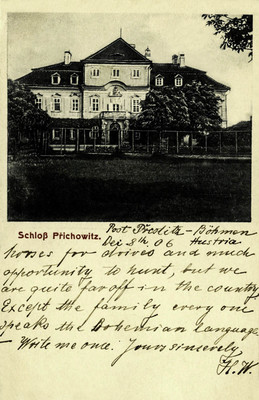 Schloß Přichowitz.
Post Přestitz - Böhmen
Dez 8th. 06 Austria
horses for drives and much
opportunity to hunt, but we
are quite far off in the country.
Except the family every one
speaks the Bohemian language.
- Write me once. Yours sincerely
H. W.